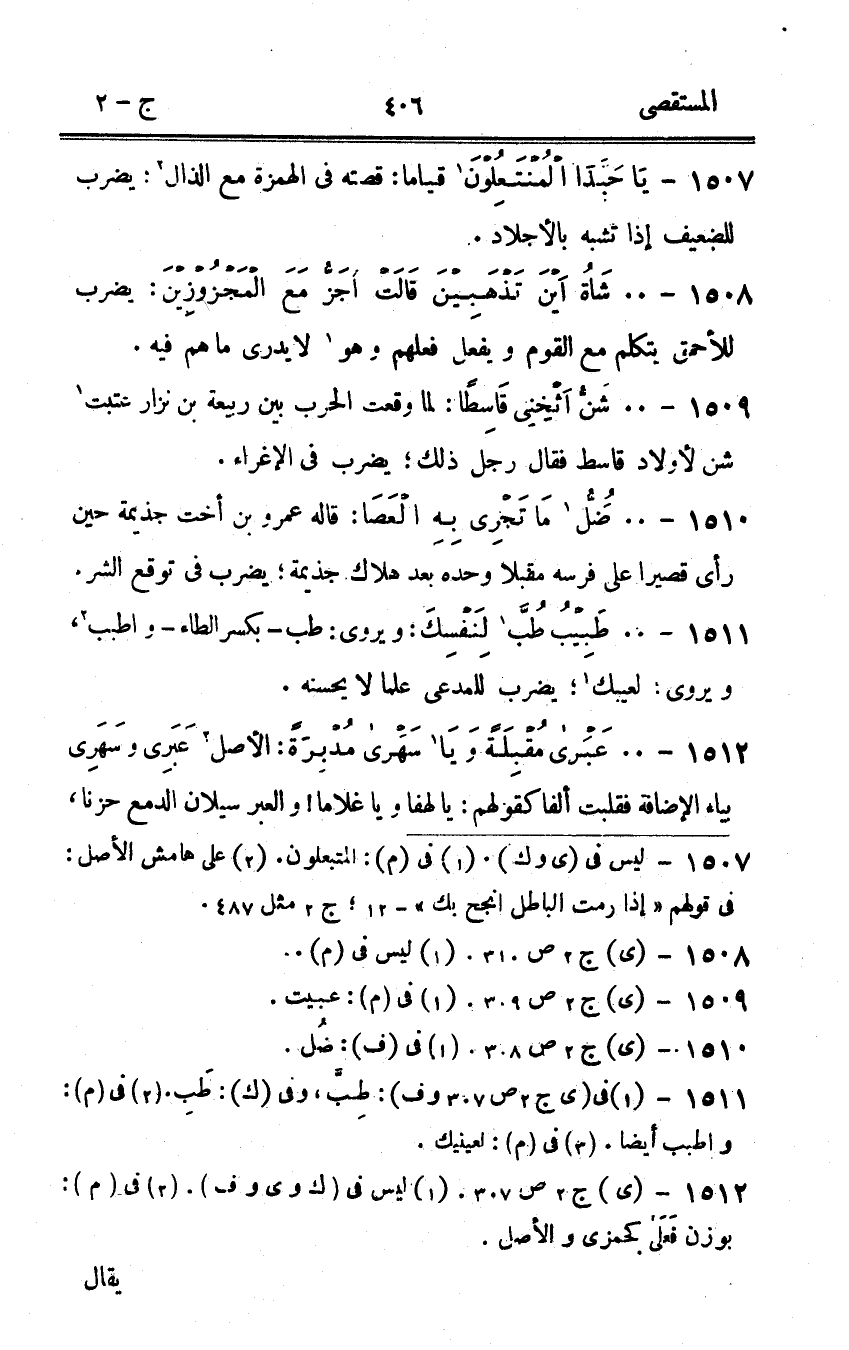 المستقصى ٤٠٦ ج – ٢
١٥٠٧ – يَا حَبَّذَا الْمُنْتَعِلُوْنَ١ قياما: قصته فى الهمزة مع الذال٢: يضرب
للضعيف إذا تشبه بالأجلاد .
١٥٠٨ – .. شَاةُ اَيْنَ تَذْهَبِيْنَ قَالَتْ اُجَزُّ مَعَ الْمَجْزُوْزِيْنَ: يضرب
للأحمق يتكلم مع القوم و يفعل فعلهم و هو١ لا يدرى ما هم فيه .
١٥٠٩ – .. شَنُّ اَثْخِنِى قَاسِطًا: لما وقعت الحرب بين ربيعة بن نزار عتبت١
شن لأولاد قاسط فقال رجل ذلك؛ يضرب فى الإغراء .
١٥١٠ – .. ضُلُّ١ مَا تَجْرِى بِهِ الْعَصَا: قاله عمرو بن أخت جذيمة حين
رأى قصيرا على فرسه مقبلا وحده بعد هلاك جذيمة؛ يضرب فى توقع الشر .
١٥١١ – .. طَبِيْبُ طُبَّ١ لِنَفْسِكَ: و يروى: طب – بكسر الطاء – و اطبب٢،
و يروى: لعيبك١؛ يضرب للمدعى علما لا يحسنه .
١٥١٢ – .. عَبْرىٰ مُقْبِلَةً وَ يَا١ سَهْرىٰ مُدْبِرَةً: الأصل٢ عَبَرِى و سَهَرِى
بياء الإضافة فقلبت ألفا كقولهم: يا لهفا و يا غلاما! و العبر سيلان الدمع حزنا،
١٥٠٧ – ليس فى (ى و ك) . (١) فى (م): المتبعلون. (٢) على هامش الأصل:
فى قولهم « إذا رمت الباطل انجح بك » – ١٢ ؛ ج ٢ مثل ٤٨٧ .
١٥٠٨ – (ى) ج ٢ ص ٣١٠ . (١) ليس فى (م) ..
١٥٠٩ – (ى) ج ٢ ص ٣٠٩ . (١) فى (م): عبيت .
١٥١٠ – (ى) ج ٢ ص ٣٠٨ . (١) فى (ف): ضُل .
١٥١١ – (١) فى (ى ج ٢ ص ٣٠٧ و ف): طِبَّ، وفى (ك): طَب. (٢) فى (م):
و اطبب أيضا . (٣) فى (م): لعينيك .
١٥١٢ – (ى) ج ٢ ص ٣٠٧ . (١) ليس فى (ك و ى و ف) . (٢) فى (م):
بوزن فَعَلىٰ كجمزى و الأصل .
يقال